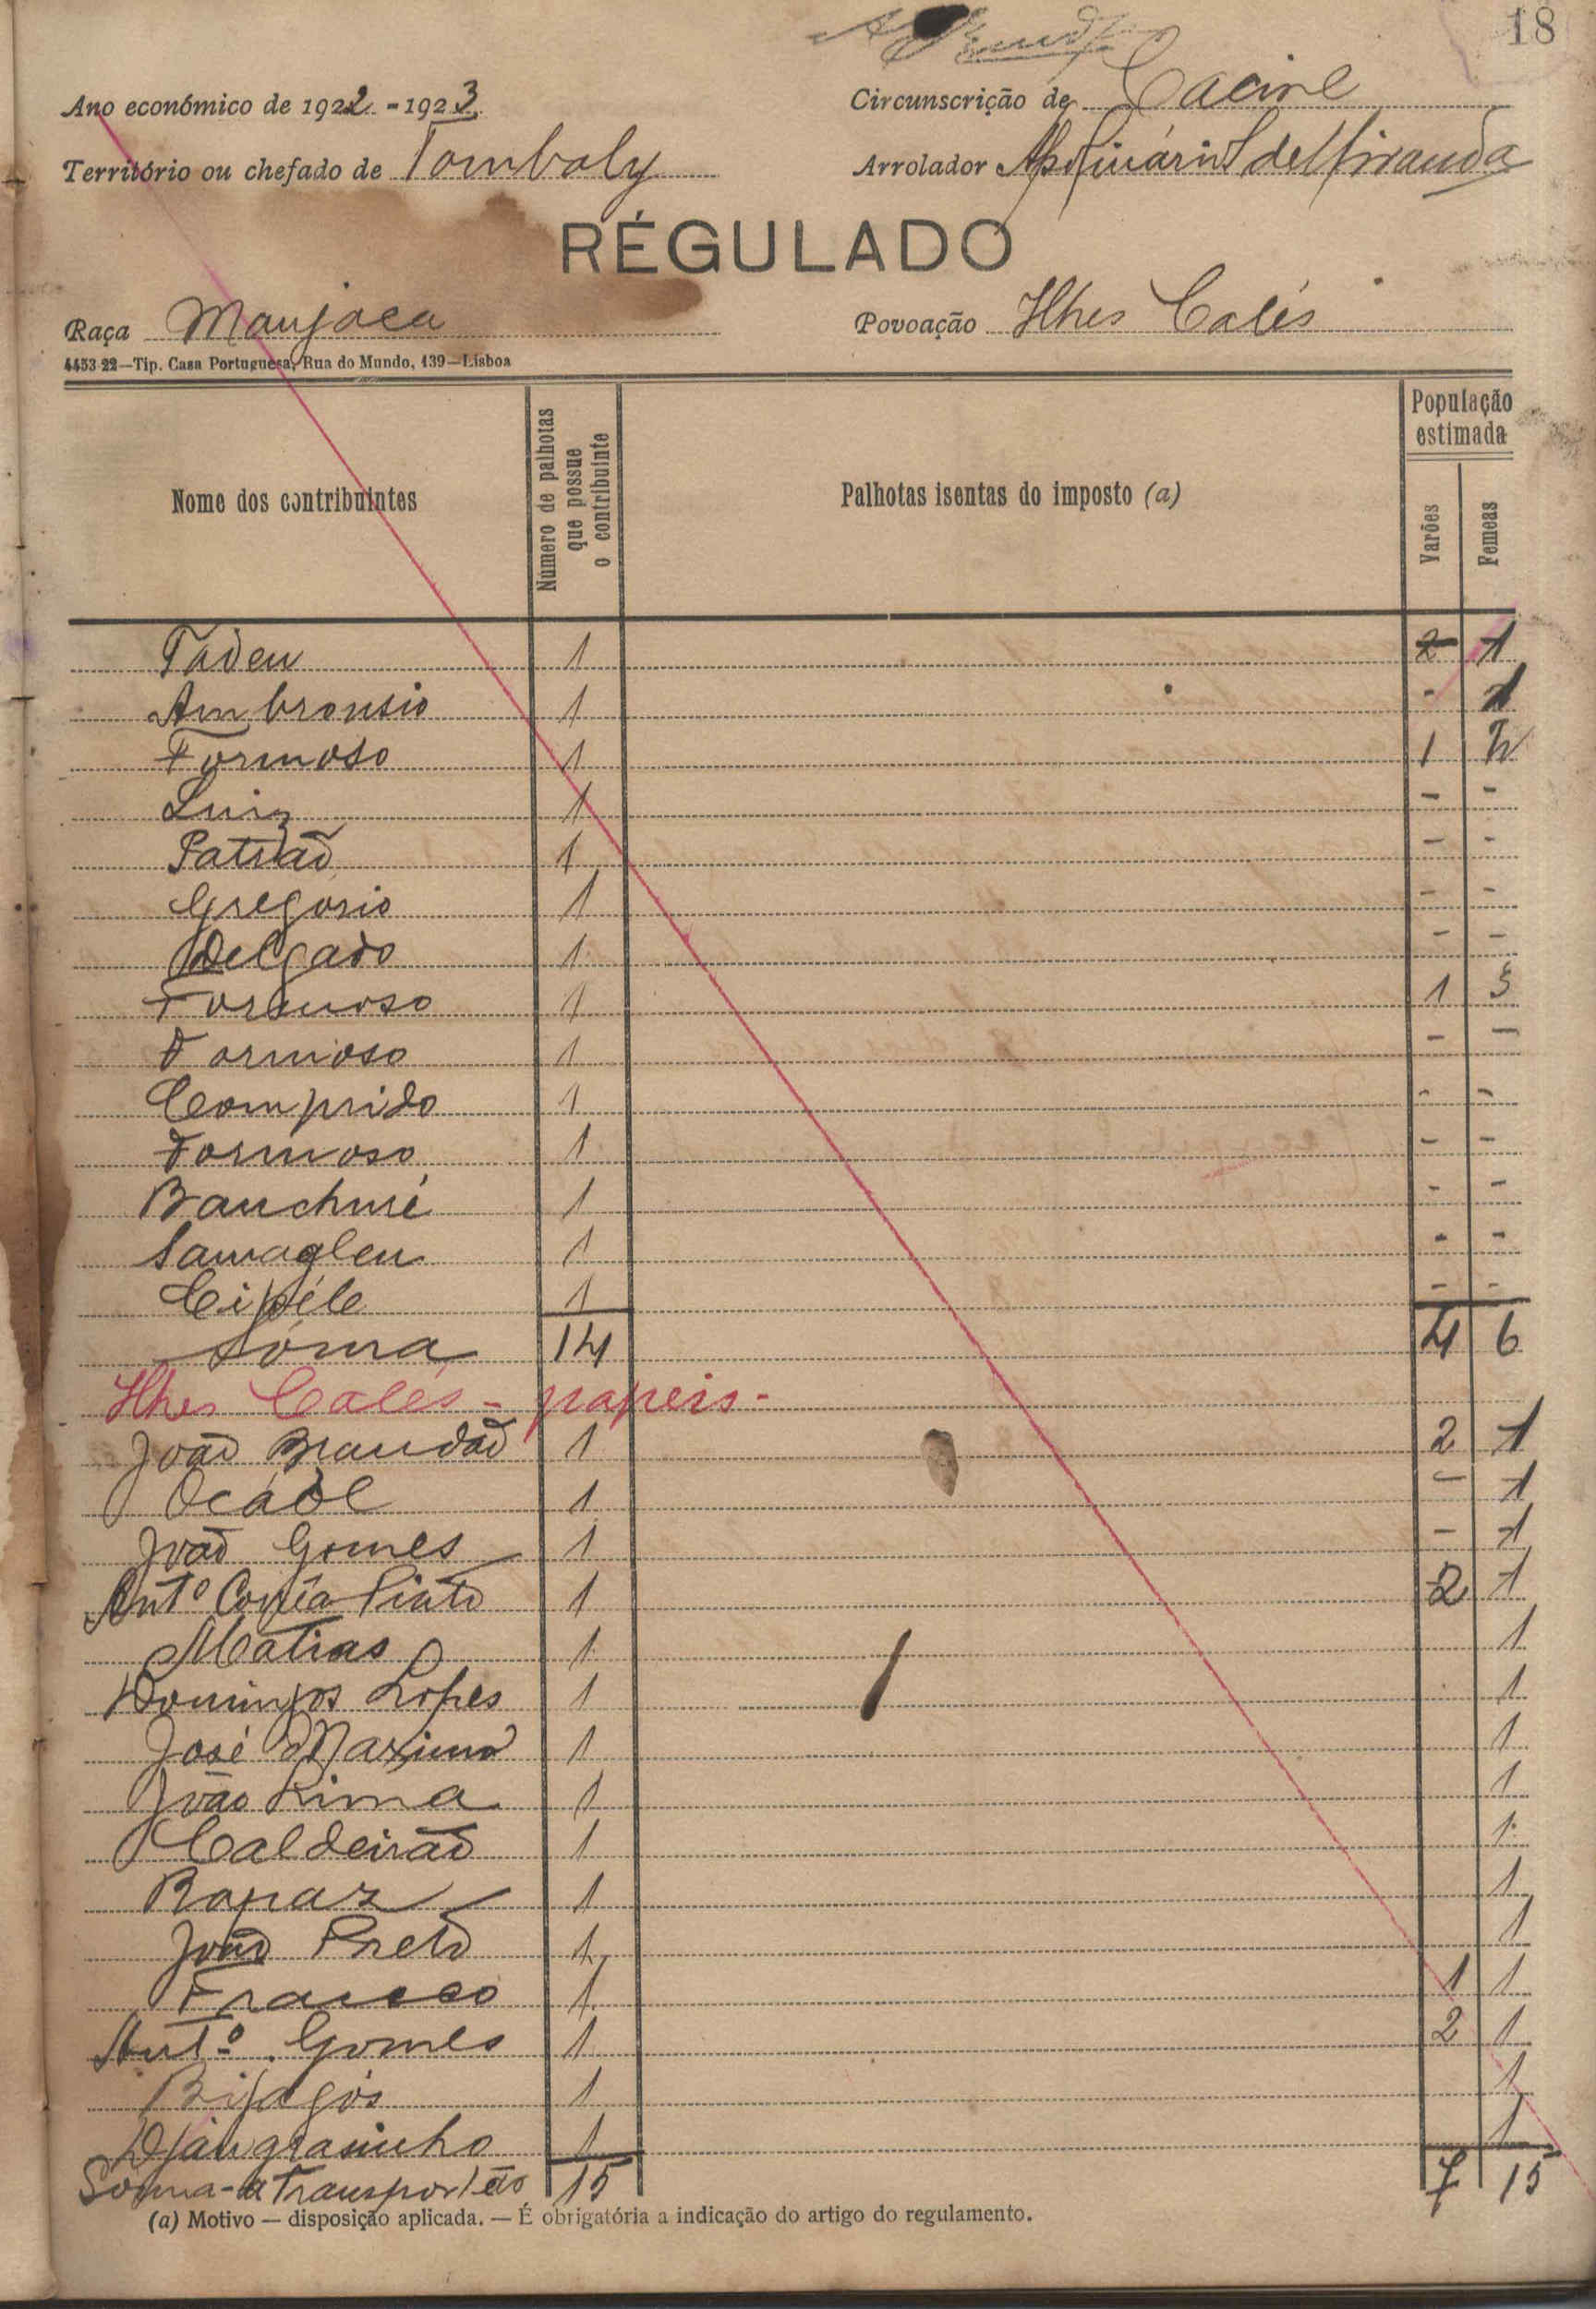 18
Ano económico de 1922-1923 Circunscrição de Cacine
Território ou chefado de Tombaly Arrolador Apolinário S de Miranda
RÉGULADO
Raça Manjaca Povoação Ilhes Calés
4453-22—Tip. Casa Portuguesa, Rua do Mundo, 139—Lisboa
Nome dos contribuintes Número de palhotas que possue o contribuinte Palhotas isentas do imposto (a) População estimada Varões Femeas
Tadeu 1 2 1
Ambronsio 1 - 1
Formoso 1 1
Luiz 1 - -
Patrão 1 - -
Gregorio 1 - -
Delgado 1 - -
Formoso 1 1 3
Formoso 1 - -
Comprido 1 - -
Formoso 1 - -
Banchuré 1 - -
1 - -
1 - -
Sôma 14 4 6
Ilhes Calés - papeis -
João Brandão 1 2 1
Ocáde 1 - 1
João Gomes 1 - 1
Antº Corrêa Pinto 1 2 1
Matias 1 1
Domingos Lopes 1 1
José Maximo 1 1
João Lima 1 1
Caldeirão 1 1
Rapaz 1 1
João Preto 1 1
Franceo 1 1 1
Antº Gomes 1 2 1
Bijagós 1 1
Djangrasinho 1 1
Soma - a Transportão 15 7 15
(a) Motivo — disposição aplicada. — É obrigatória a indicação do artigo do regulamento.